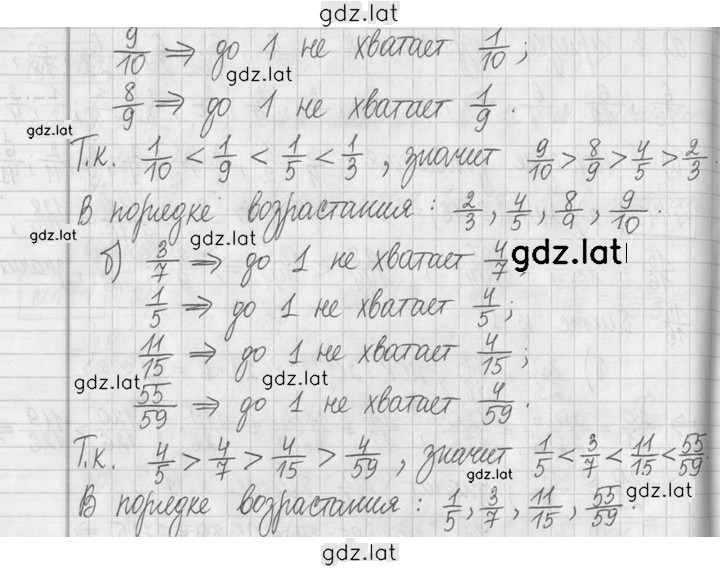 gdz.lat
9/10 ⇒ до 1 не хватает 1/10;
gdz.lat
8/9 ⇒ до 1 не хватает 1/9.
gdz.lat
Т.к. 1/10 < 1/9 < 1/5 < 1/3, значит 9/10 > 8/9 > 4/5 > 2/3
В порядке возрастания: 2/3, 4/5, 8/9, 9/10.
gdz.lat gdz.lat gdz.lat
б) 3/7 ⇒ до 1 не хватает 4/7;
1/5 ⇒ до 1 не хватает 4/5;
11/15 ⇒ до 1 не хватает 4/15;
gdz.lat gdz.lat
55/59 ⇒ до 1 не хватает 4/59.
Т.к. 4/5 > 4/7 > 4/15 > 4/59, значит 1/5 < 3/7 < 11/15 < 55/59
gdz.lat gdz.lat
В порядке возрастания: 1/5, 3/7, 11/15, 55/59.
gdz.lat